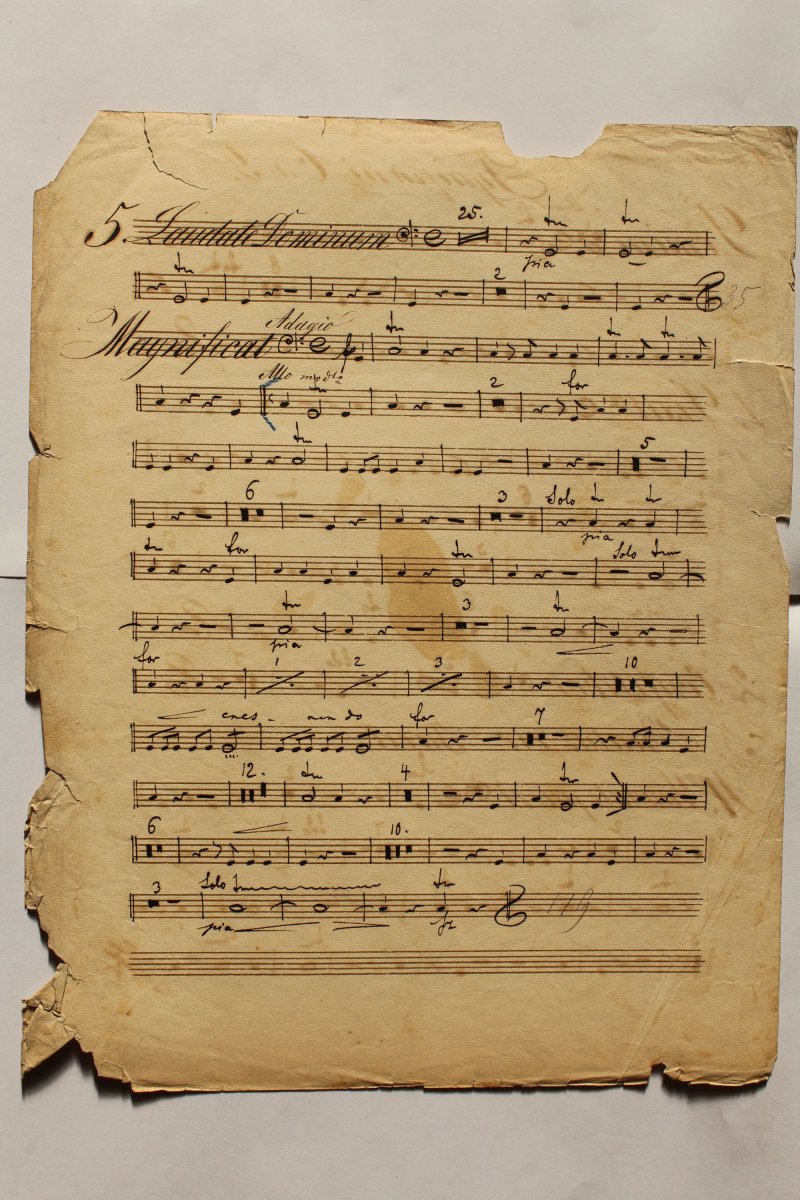 25. tr tr
5. Laudate Dominum
pia
tr 2
35
Adagio tr tr tr
Magnificat
Allo modto tr 2 for
tr 5
6 3 Solo tr tr
pia
tr for tr Solo tr
tr 3 tr
pia
for 1 2 3 10
cres - cen do for 7
12. tr 4 tr
6 10.
3 Solo tr tr
pia fz
119